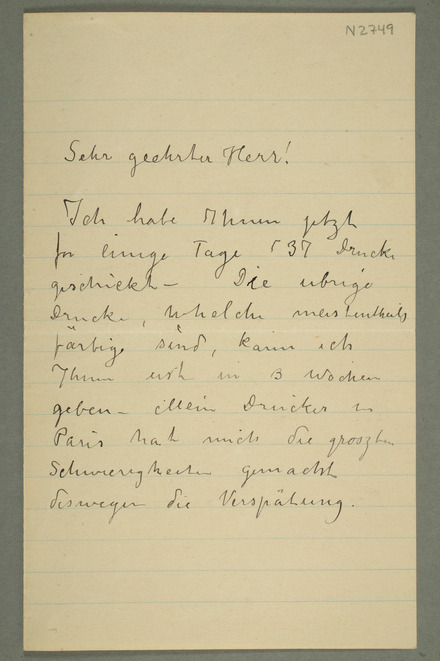 N2749
Sehr geehrter Herr!
Ich habe Ihnen jetzt
for einige Tage 137 Drucke
geschickt – Die ubrige
Drucke, whelche meistentheils
färbige sind, kann ich
Ihnen erst in 3 Wochen
geben – Mein Drucker in
Paris hat mich die groszten
Schwierigkeiten gemacht
deswegen die Verspätung.